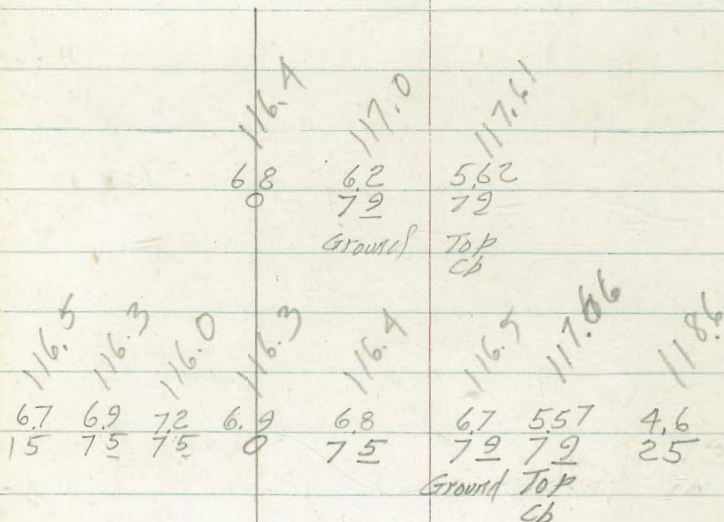 116.4 117.0 117.61
6.8 6.2 5.62
0 79 79
Ground Top
Cb
116.5 116.3 116.0 116.3 116.4 116.5 117.66 118.6
6.7 6.9 7.2 6.9 6.8 6.7 5.57 4.6
15 75 75 0 75 79 79 25
Ground Top
Cb